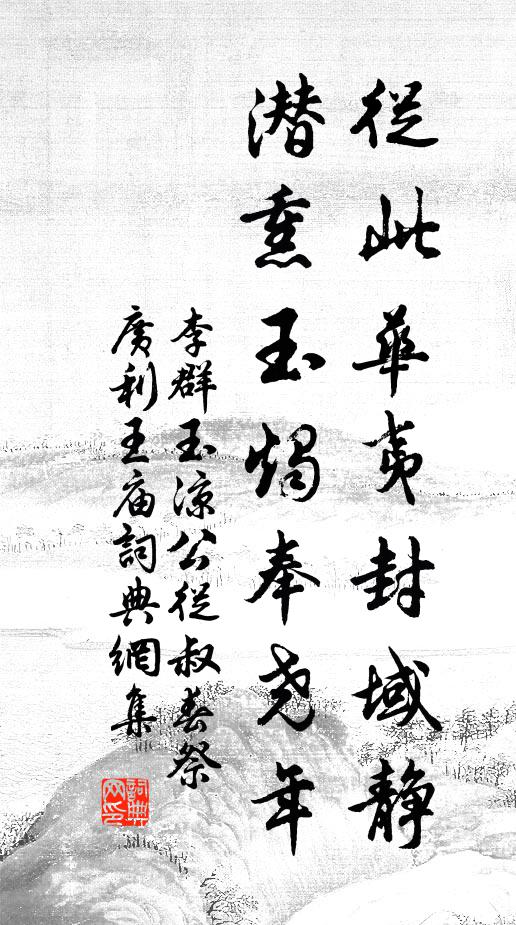 從此華夷封域靜
潜熏玉燭奉尧年
李群玉涼公從叔春祭
廣利王庙詞典網集
詞典网印